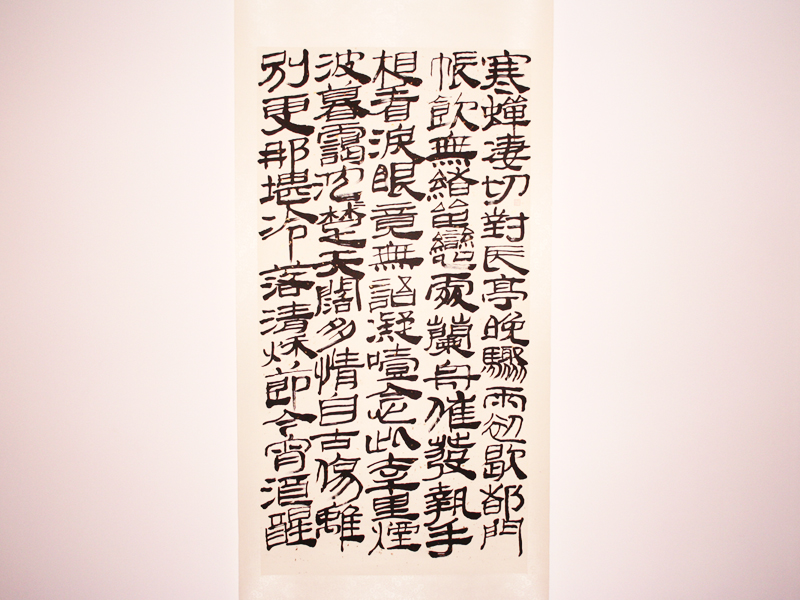 寒蟬凄切對長亭晚驟雨初歇都門
帳飲無緒留戀處蘭舟催發執手
相看淚眼竟無語凝噎念此去千里煙
波暮靄沉楚天闊多情自古傷離
別更那堪冷落清秋節今宵酒醒